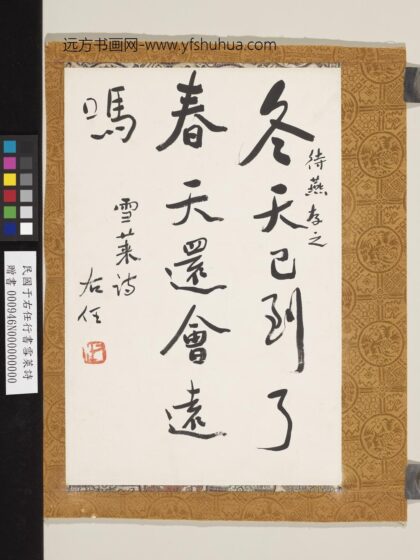 远方书画网-www.yfshuhua.com
冬天已到了
春天還會遠
嗎
待燕存之
雪萊詩
右任
民國于右任行書雪萊詩
贈書000946N000000000